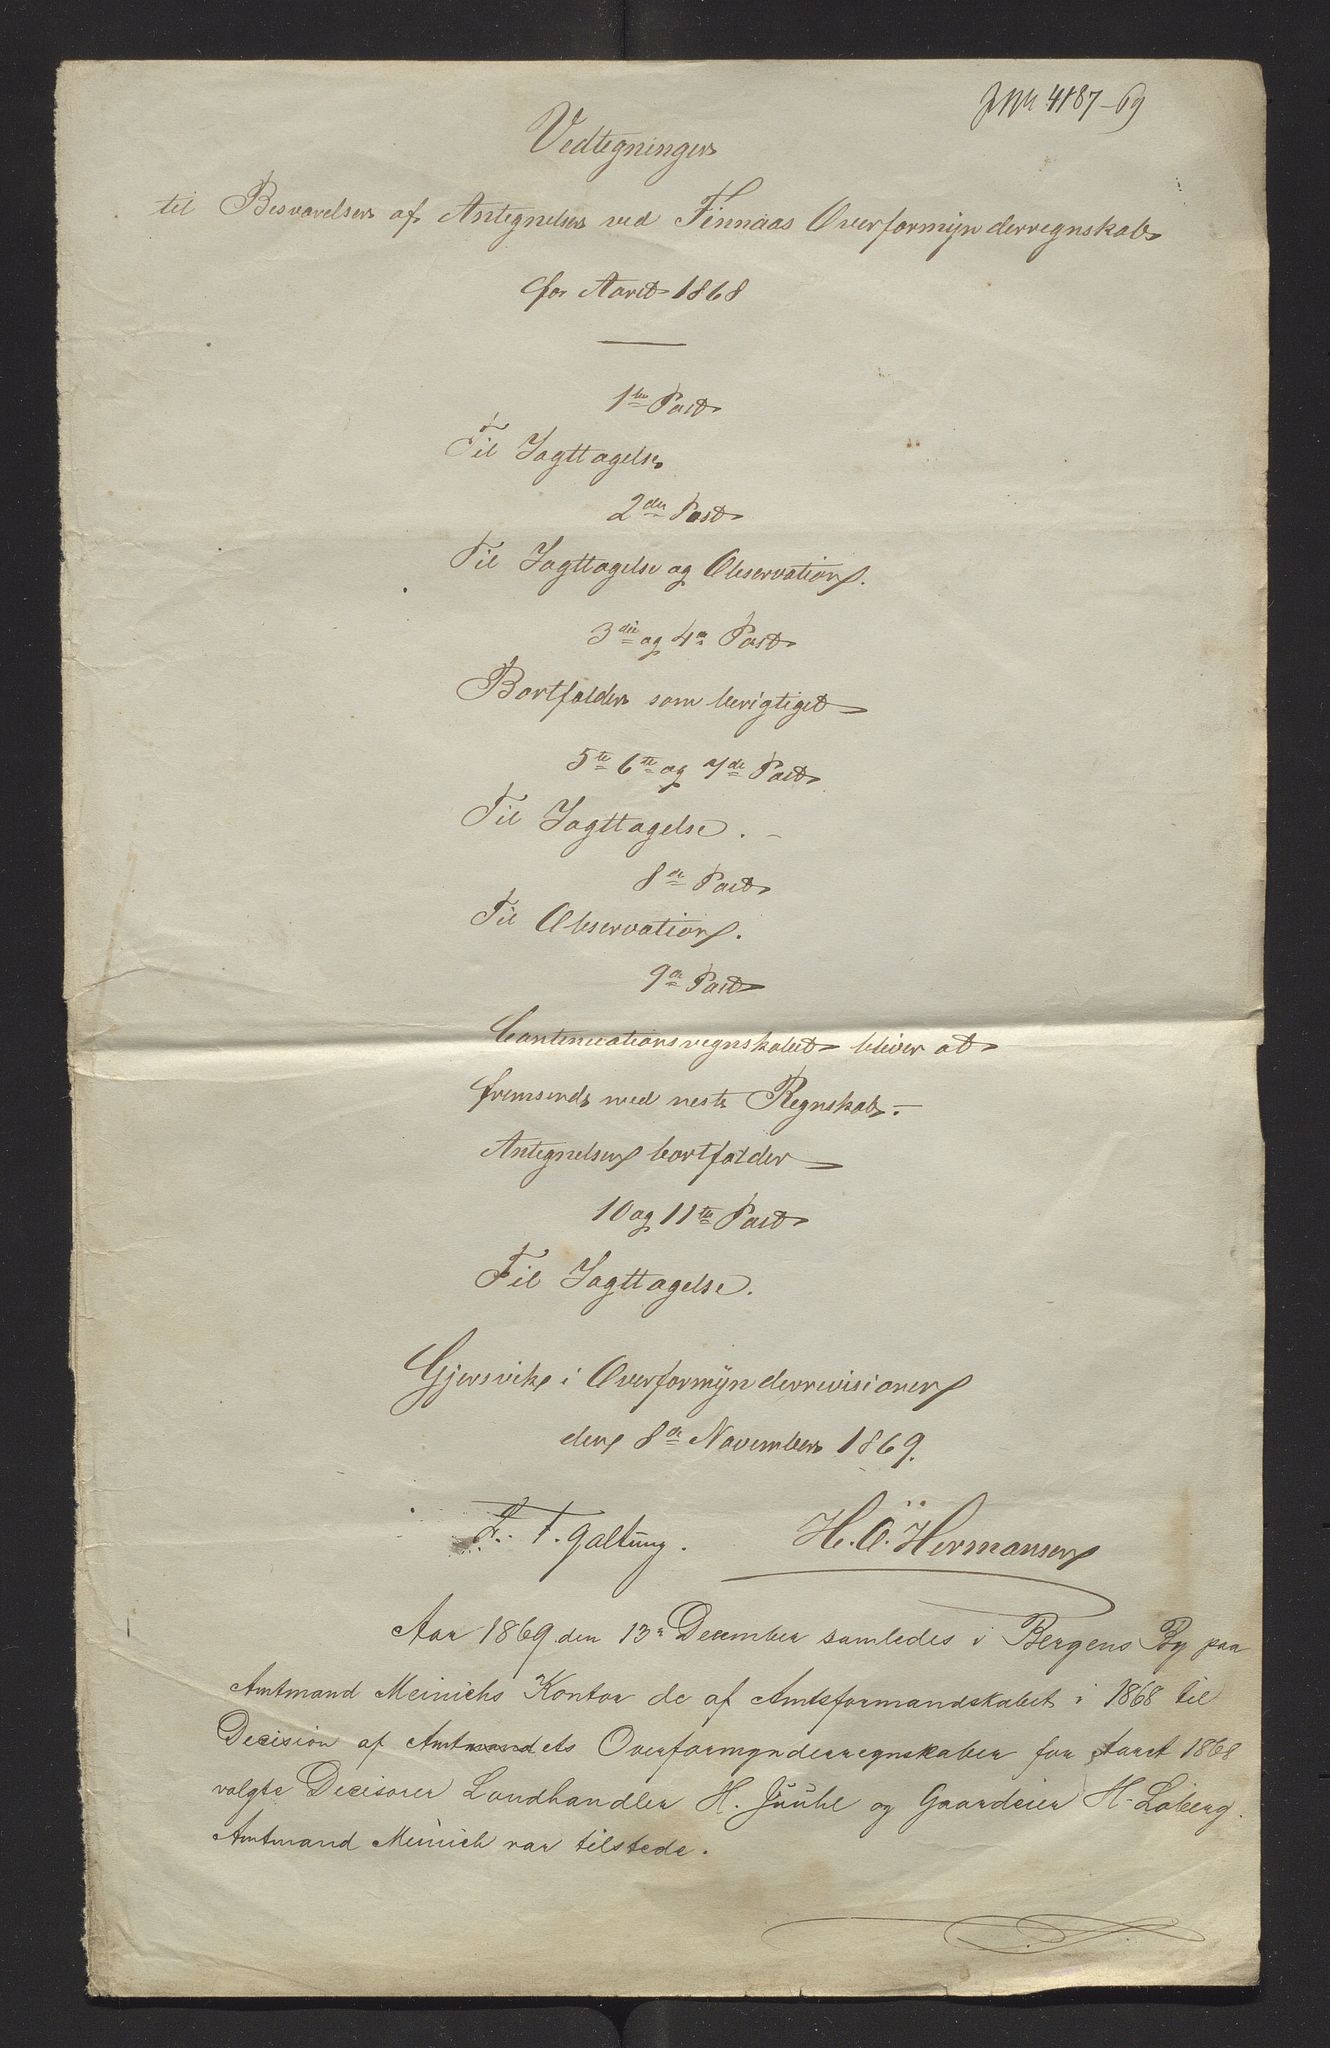 JNr 4187-69
Vedtegninger
til Besvarelser af Antegnelser ved Finnaas Overformynderregnskab
for Aaret 1868
1ste Post
Til Jagttagelse
2den Post
Til Jagttagelse og Observation.
3die og 4a Post
Bortfalder som berigtiget
5te 6te og 7de Post
Til Jagttagelse. -
8de Post
Til Observation.
9de Post
Continuationsregnskabet bliver at
fremsende med neste Regnskab. -
Antegnelsen bortfalder
10 og 11te Post
Til Jagttagelse.
Gjersvik i Overformynderrevisionen
den 8de November 1869.
F. T. Galtung. H. O. Hermansen
Aar 1869 den 13de December samledes i Bergens By paa
Amtmand Meinichs Kontor de af Amtsformandskabet i 1868 til
Decision af Amtmandets Overformynderregnskaber for Aaret 1868
valgte Decisorer Landhandler H. Juuhl og Gaardeier H. Loberg.
Amtmand Meinich var tilstede.